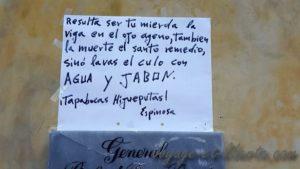 Resulta ser tu mierda la
viga en el ojo ageno, tambien
la muerte el santo remedio,
sinó lavas el culo con
AGUA y JABON.
¡Tapabocas Hijueputas!
Espinosa
General